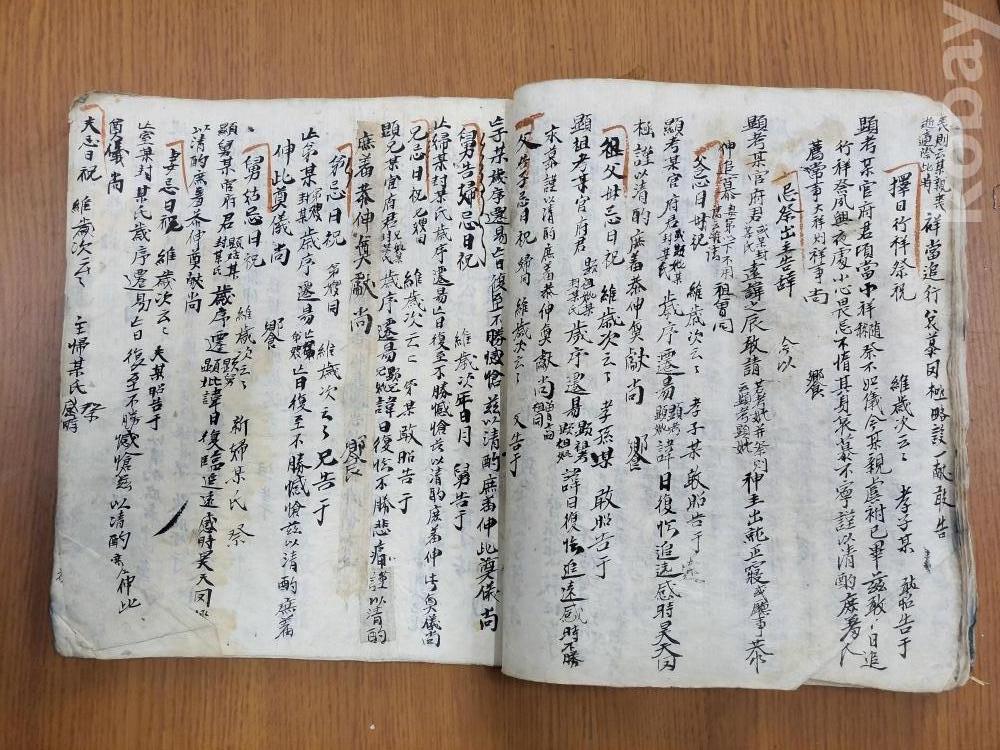 Kobay
祥當追行 哀慕因極略設一献敢告
擇日行祥祭祝 維歲次云云 孝子某 敢昭告于
顯考某官府君頃當中祥 隨祭不如儀今某親虞祔已畢玆敢 日追
行祥祭夙興夜處小心畏忌不惰其身哀慕不寧謹以清酌庶羞
薦常事 大祥則祥事 尚 饗
忌祭出主告辞 今以
顯考某官府君 或某封某氏 遠諱之辰敢請 神主出就正寢或廳事恭
伸追慕 祖曾同
父忌日母祝 維歲次云云 孝子某 敢昭告于
顯考某官府君 或顯妣某封某氏 歲序遷易 顯考 顯妣 諱日復臨追遠感時昊天罔
極謹以清酌庶羞恭伸奠献尚 饗
祖父母忌日祝 維歲次云云 孝孫某 敢昭告于
顯祖考某官府君 顯祖妣某封某氏 歲序遷易 顯祖考 顯祖妣 諱日復臨追遠感時不勝
永慕謹以清酌庶羞恭伸奠献尚
父告子忌日祝 婦同 維歲次云云 父告于
亡子某歲序遷易亡日復至不勝憾愴玆以清酌庶羞伸此奠儀尚
舅告婦忌日祝 維歲次年日月 舅告于
亡婦某封某氏歲序遷易亡日復至不勝憾愴玆以清酌庶羞伸此奠儀尚
兄忌日祝 兄嫂同 維歲次云云 弟某敢昭告于
顯兄某官府君 歲序遷易 諱日復臨不勝悲痛謹以清酌
庶羞恭伸奠献尚 饗
弟忌日祝 弟嫂同 維歲次云云 兄告于
亡弟某 歲序遷易 亡日復至不勝憾愴玆以清酌庶羞
伸此奠儀尚 饗
舅姑忌日祝 維歲次云云 新婦某氏 祭
顯舅某官府君 顯姑某封某氏 歲序遷 顯舅 顯姑 諱日復臨追遠感時昊天罔極
以清酌庶羞恭伸奠献尚
妻忌日祝 維歲次云云 夫某昭告于
亡室某封某氏歲序遷易亡日復至不勝感愴玆以清酌 伸此
奠儀尚
夫忌日祝 維歲次云云 主婦某氏